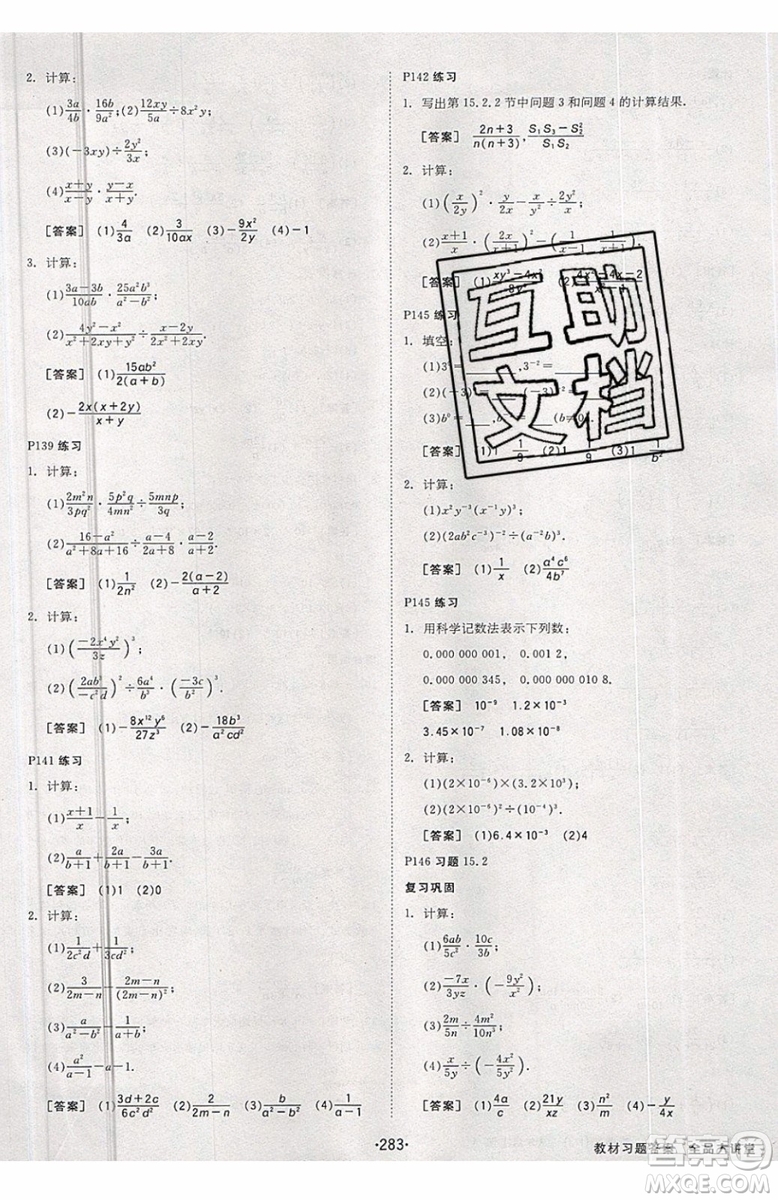 2. 计算:
(1)3a/4b · 16b/9a²;(2)12xy/5a÷8x²y;
(3)(-3xy)÷2y²/3x;
(4)x+y/x-y · y-x/x+y.
[答案] (1)4/3a (2)3/10ax (3)-9x²/2y (4)-1
3. 计算:
(1)3a-3b/10ab · 25a²b³/a²-b²;
(2)4y²-x²/x²+2xy+y²÷x-2y/2x²+2xy.
[答案] (1)15ab²/2(a+b)
(2)-2x(x+2y)/x+y
P139 练习
1. 计算:
(1)2m²n/3pq² · 5p²q/4mn²÷5mnp/3q;
(2)16-a²/a²+8a+16÷a-4/2a+8 · a-2/a+2.
[答案] (1)1/2n² (2)-2(a-2)/a+2
2. 计算:
(1)(-2x⁴y²/3z)³;
(2)(2ab³/-c²d)²÷6a⁴/b³ · (-3c/b²)³.
[答案] (1)-8x¹²y⁶/27z³ (2)-18b³/a²cd²
P141 练习
1. 计算:
(1)x+1/x-1/x;
(2)a/b+1+2a/b+1-3a/b+1.
[答案] (1)1 (2)0
2. 计算:
(1)1/2c²d+1/3cd²;
(2)3/2m-n-2m-n/(2m-n)²;
(3)a/a²-b²-1/a+b;
(4)a²/a-1-a-1.
[答案] (1)3d+2c/6c²d² (2)2/2m-n (3)b/a²-b² (4)1/a-1
P142 练习
1. 写出第 15.2.2 节中问题 3 和问题 4 的计算结果.
[答案] 2n+3/n(n+3),S₁S₃-S₂²/S₁S₂
2. 计算:
(1)(x/2y)² · y/2x-x/y²÷2y²/x;
(2)x+1/x · (2x/x+1)²-(1/x-1-1/x+1).
[答案] (1)xy³-4x²/8y⁴ (2)4x²-4x-2/x²-1
P145 练习
1. 填空:
[答案] (1)1 1/9 (2)1 1/9 (3)1 1/b²
2. 计算:
(1)x²y⁻³(x⁻¹y)³;
(2)(2ab²c⁻³)⁻²÷(a⁻²b)³.
[答案] (1)1/x (2)a⁴c⁶/4b⁷
P145 练习
1. 用科学记数法表示下列数:
0.000 000 001, 0.001 2,
0.000 000 345, 0.000 000 010 8
[答案] 10⁻⁹ 1.2×10⁻³
3.45×10⁻⁷ 1.08×10⁻⁸
2. 计算:
(1)(2×10⁻⁶)×(3.2×10³);
(2)(2×10⁻⁶)²÷(10⁻⁴)³.
[答案] (1)6.4×10⁻³ (2)4
P146 习题 15.2
复习巩固
1. 计算:
(1)6ab/5c² · 10c/3b;
(2)-7x/3yz · (-9y²/x²);
(3)2m/5n÷4m²/10n³;
(4)x/5y÷(-4x²/5y²).
[答案] (1)4a/c (2)21y/xz (3)n²/m (4)-y/4x
互助
文档
·283·
教材习题答案 全品大讲堂